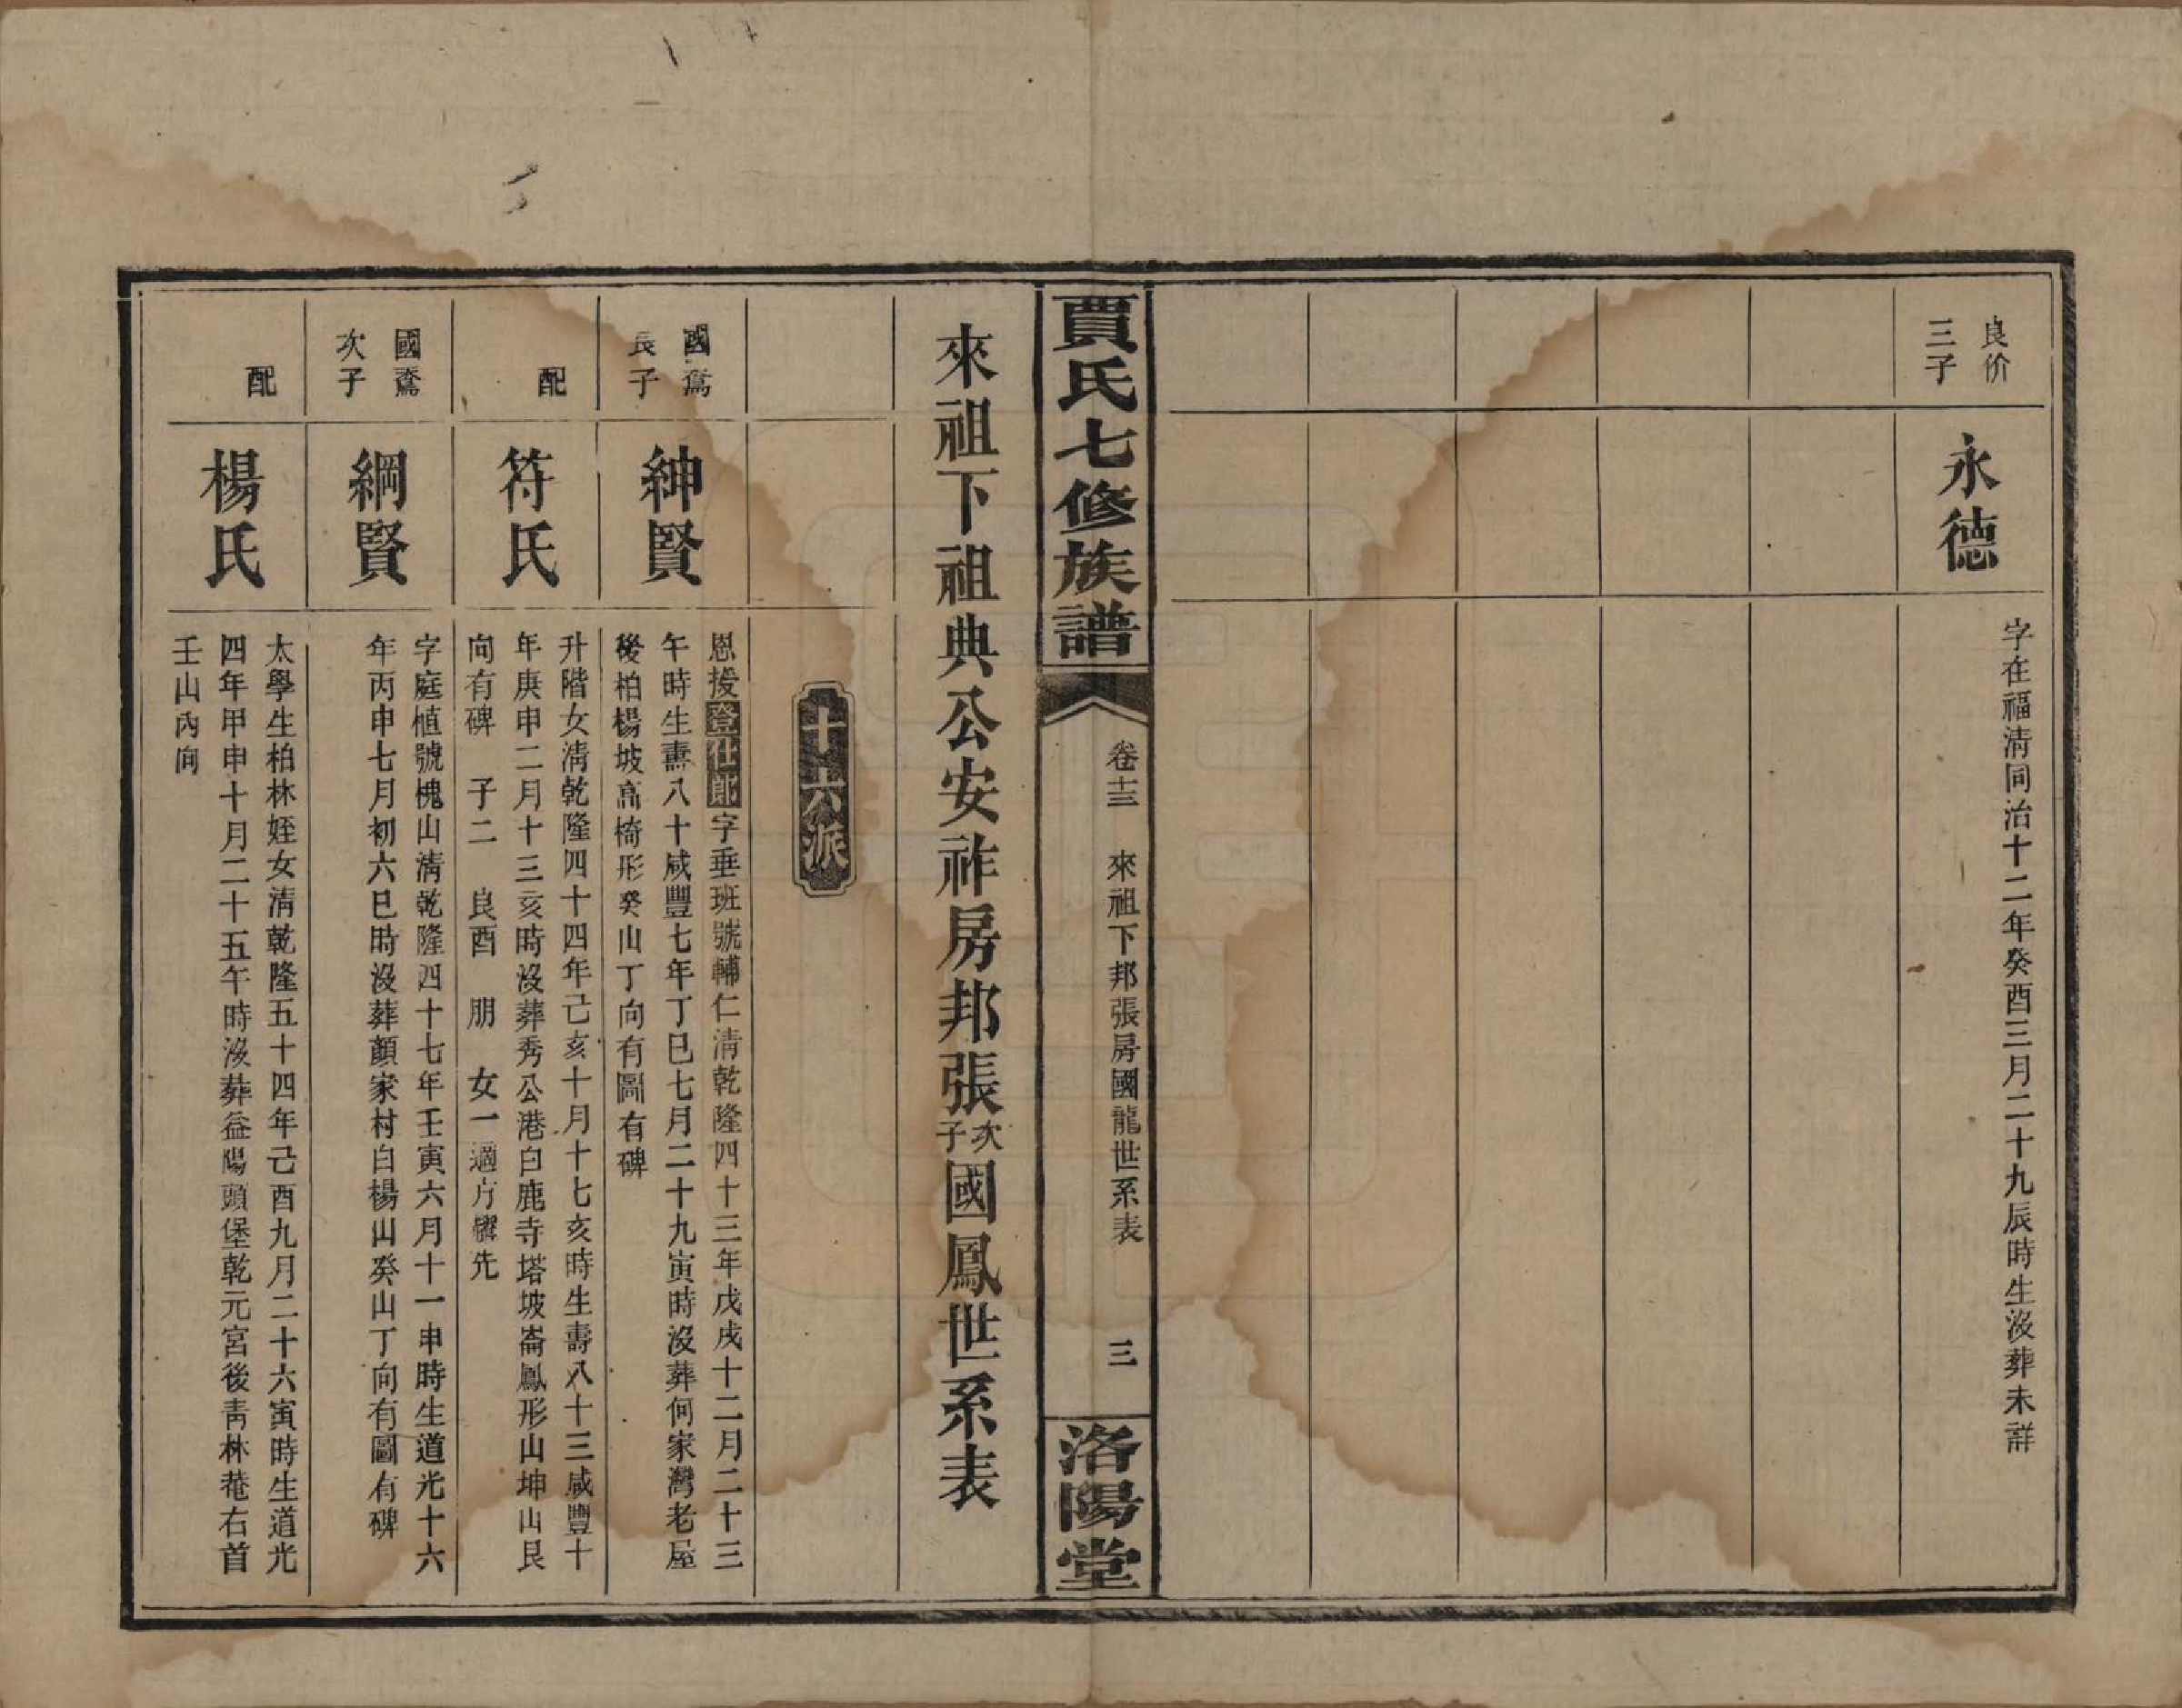 良价
三子
永德
字在福清同治十二年癸酉三月二十九辰時生沒葬未詳
賈氏七修族譜
卷十三
來祖下邦張房國龍世系表
三
洛陽堂
來祖下祖典公安祚房邦張次子國鳳世系表
十六派
國鶱
長子
紳賢
恩授登仕郎字垂班號輔仁清乾隆四十三年戊戌十二月二十三
午時生壽八十咸豐七年丁巳七月二十九寅時沒葬何家灣老屋
後柏楊坡高椅形癸山丁向有圖有碑
配
符氏
升階女清乾隆四十四年己亥十月十七亥時生壽八十三咸豐十
年庚申二月十三亥時沒葬秀公港白鹿寺塔坡崙鳳形山坤山艮
向有碑 子二 良酉 朋 女一適方耀先
國鶱
次子
綱賢
字庭植號槐山清乾隆四十七年壬寅六月十一申時生道光十六
年丙申七月初六巳時沒葬顏家村白楊山癸山丁向有圖有碑
配
楊氏
太學生柏林姪女清乾隆五十四年己酉九月二十六寅時生道光
四年甲申十月二十五午時沒葬益陽頭堡乾元宮後靑林菴右首
壬山丙向